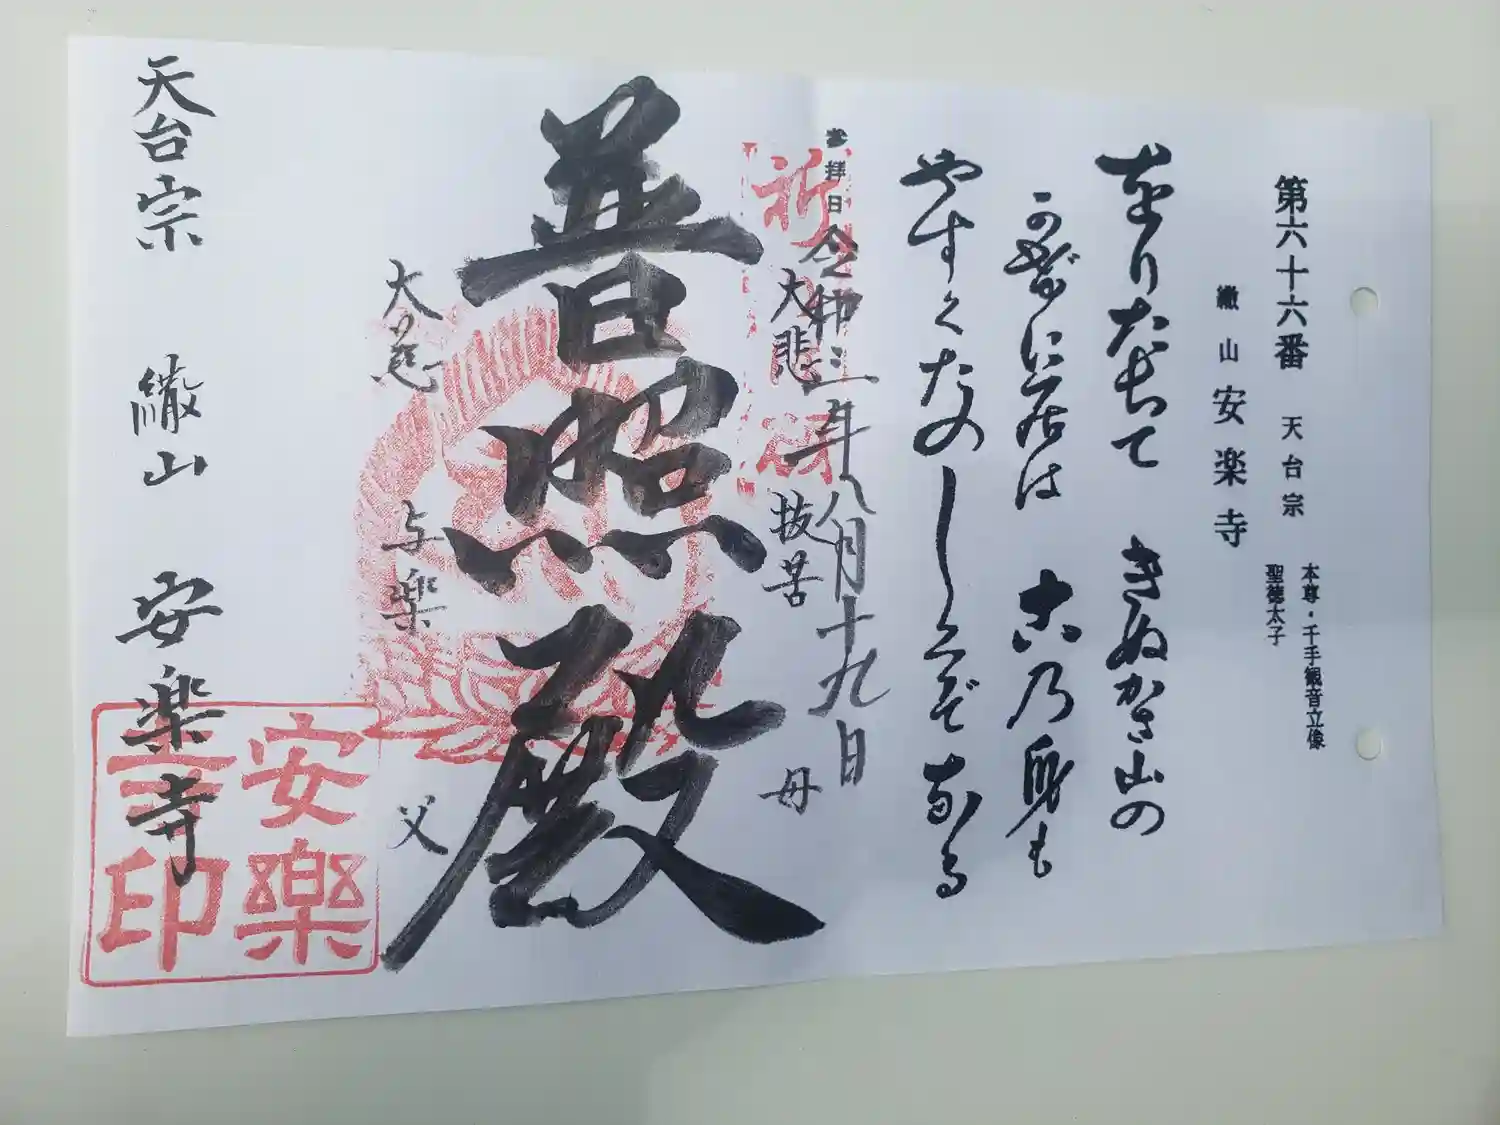 第六十六番 天台宗 本尊・千手観音立像
聖徳太子
繖山 安楽寺
をりたちて きぬかさ山の
かぜに居は 古乃身も
やすくたのしくぞなる
参拝日 令和三年八月十九日
大悲 抜苦 母
普照殿
大慈 与楽 父
天台宗 繖山 安楽寺
安樂
印